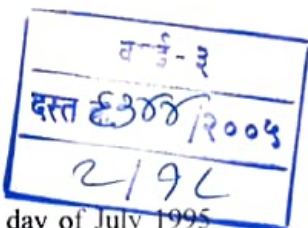 व ई - ३
दस्त ६३४४/२००५
२/१८
day of July 1995